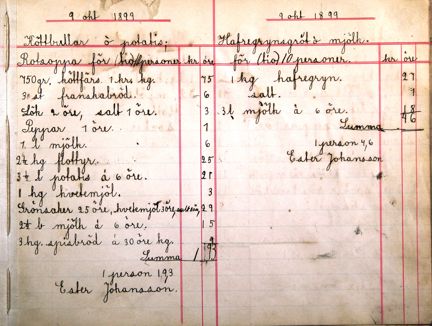 9 okt 1899
Köttbullar o potatis;
Rotsoppa för personer kr öre
750gr. köttfärs 1 krs kg. 75
3 st franskabröd. 6
Lök 2 öre, salt 1 öre. 3
Peppar 1 öre. 1
1 l mjölk. 6
2½ hg flottyr. 25
3½ l potatis á 6 öre. 21
1 hg hvetemjöl. 3
Grönsaker 25 öre, hvetemjöl 3 öre, 29
2½ l mjölk á 6 öre. 15
3 hg spisbröd á 30 öre kg. 9
Summa 1 93
1 person 19,3
Ester Johansson.
9 okt 1899
Hafregrynsgröt o mjölk.
för (tio) 10 personer. kr öre
1 kg hafregryn. 27
salt. 1
3 l mjölk á 6 öre. 18
Summa 46
1 person 4,6
Ester Johansson